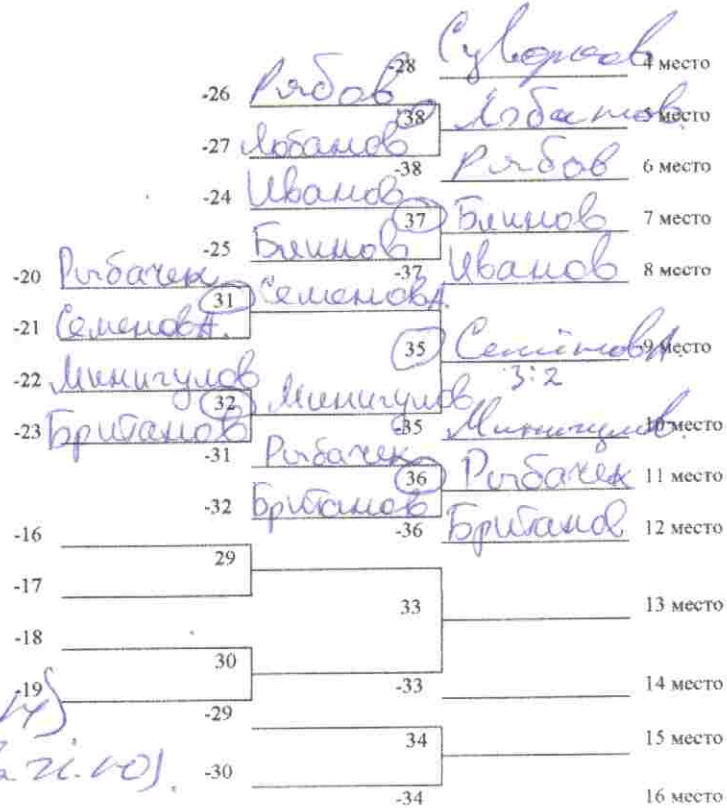 -28 Суворов 4 место
-26 Рябов
38 Лобанов 5 место
-27 Лобанов
-38 Рябов 6 место
-24 Иванов
37 Блинов 7 место
-25 Блинов
-37 Иванов 8 место
-20 Рыбачек
31 Семенов А.
-21 Семенов А.
35 Семёнов А. 9 место
3:2
-22 Минигулов
32 Минигулов
-23 Британов
-35 Минигулов 10 место
-31 Рыбачек
36 Рыбачек 11 место
-32 Британов
-36 Британов 12 место
-16
29
-17
33 13 место
-18
30
-19
-33 14 место
-29
34 15 место
-30
-34 16 место